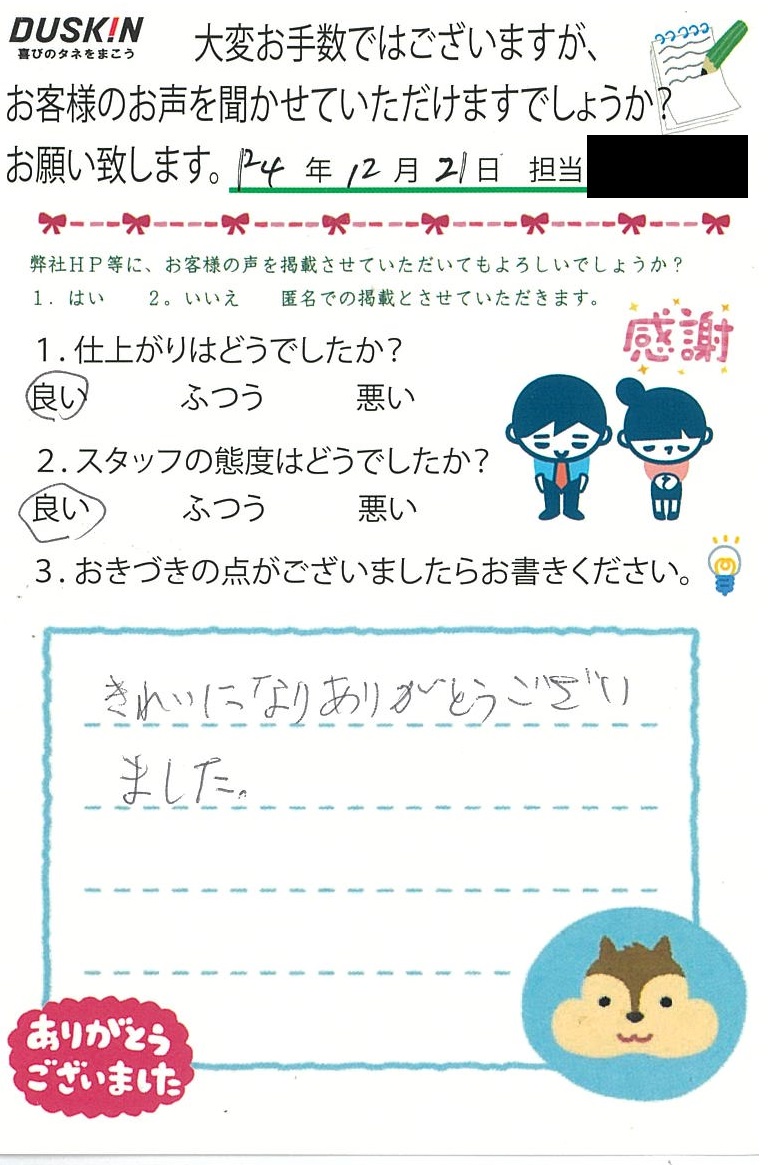 DUSK!N
喜びのタネをまこう
大変お手数ではございますが、
お客様のお声を聞かせていただけますでしょうか?
お願い致します。'24年12月21日 担当
弊社HP等に、お客様の声を掲載させていただいてもよろしいでしょうか?
1. はい 2。いいえ 匿名での掲載とさせていただきます。
感謝
1.仕上がりはどうでしたか?
良い ふつう 悪い
2.スタッフの態度はどうでしたか?
良い ふつう 悪い
3.おきづきの点がございましたらお書きください。
きれいになりありがとうござい
ました。
ありがとう
ございました